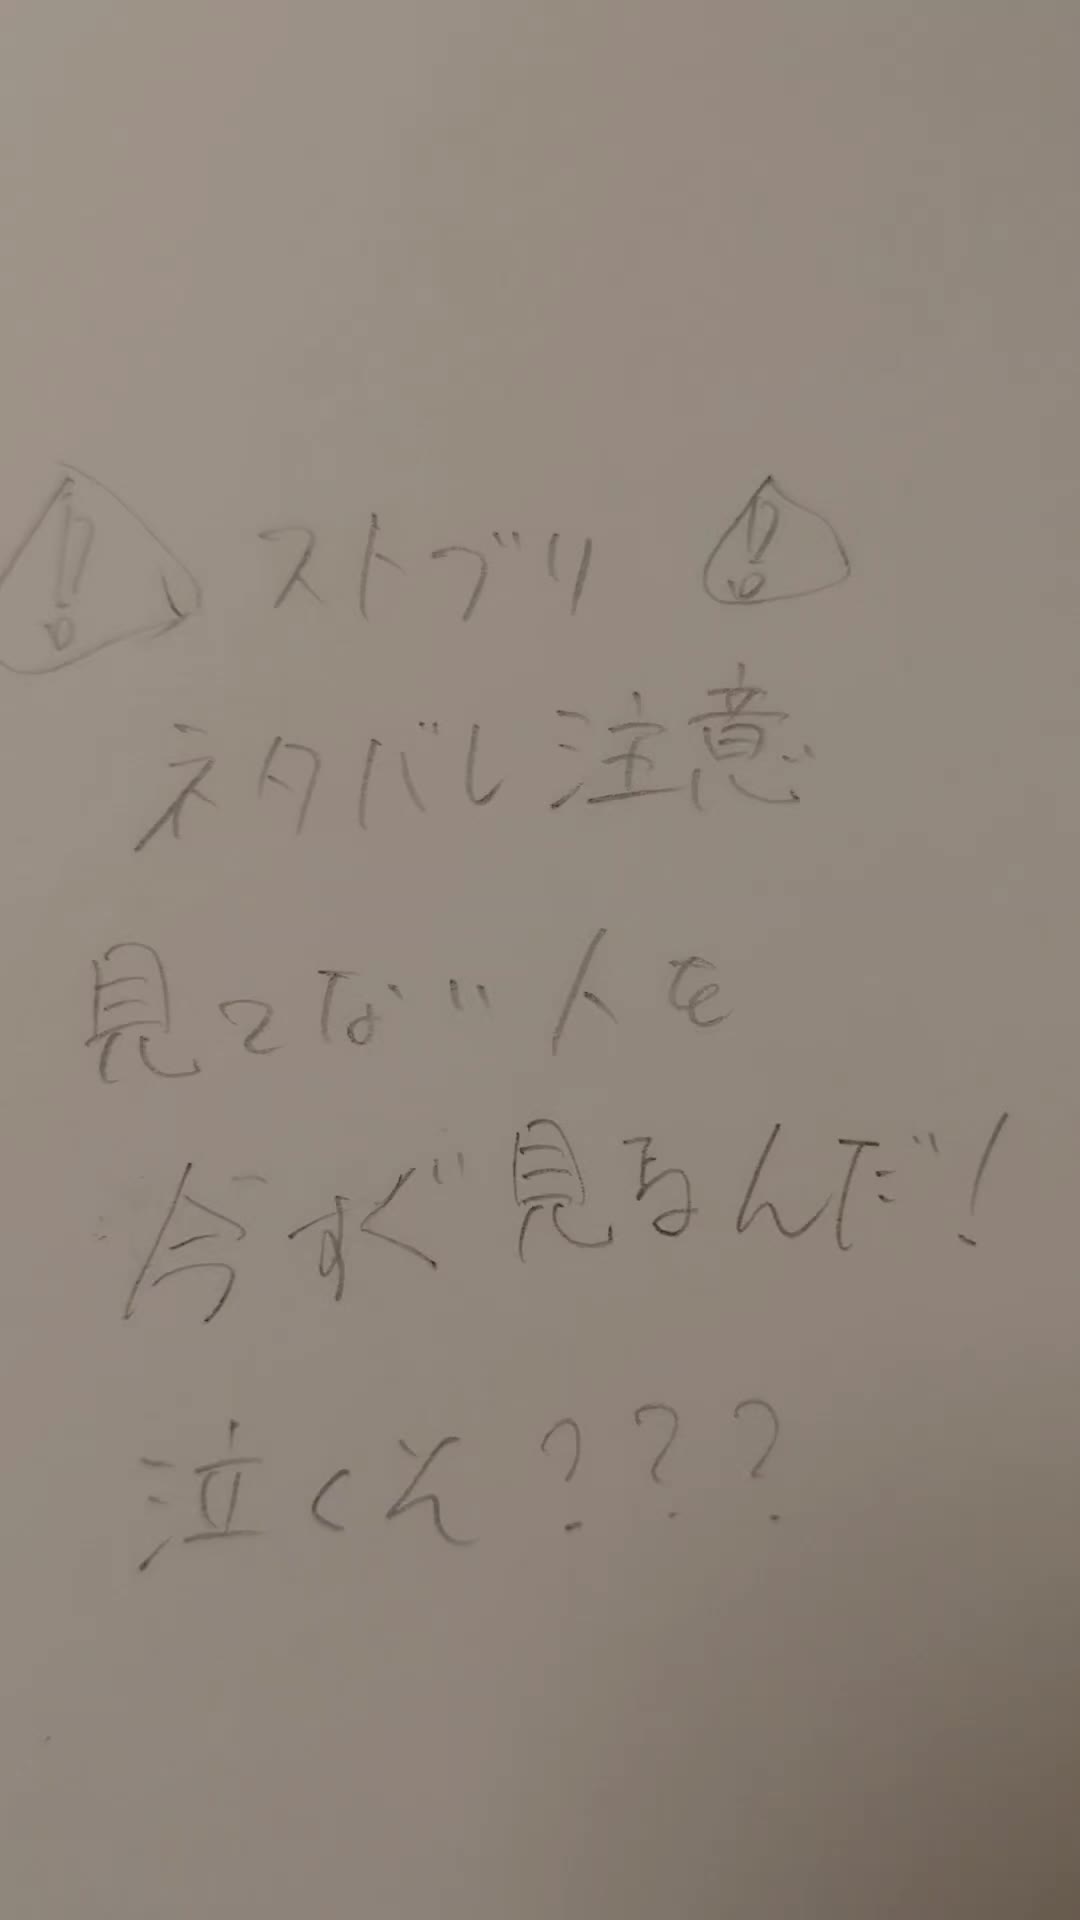 ⚠ストブリ⚠
ネタバレ注意
見てない人を
今すぐ見るんだ!
泣くぞ???